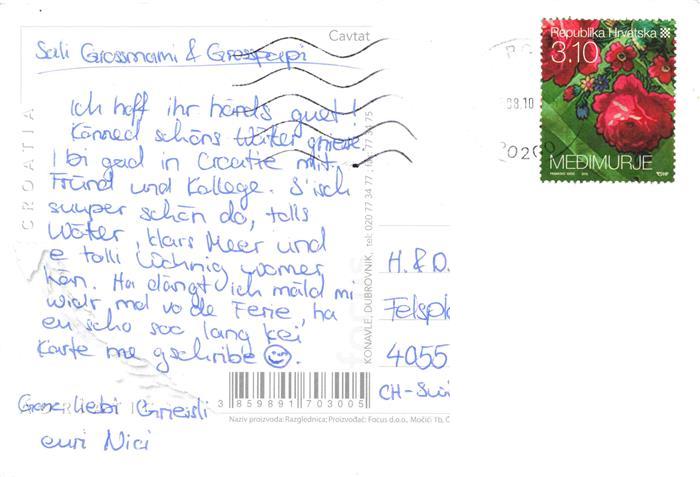 Cavtat
Sali Grossmami & Grosspapi
Ich hoff ihr händs guet!
schöns Wätter
I bi grad in Croatie mit
Fründ und Kollege. S'isch
suuper schön do, tolls
Wätter, klars Meer und
e tolli Wohnig womer
hän. Ha dängt ich mäld mi
widr mal vo de Ferie, ha
eu scho soo lang kei
Karte me gschribe
liebi Griessli
euri Nici
CROATIA
KONAVLE, DUBROVNIK, tel: 020 77 34 77,
Republika Hrvatska
3.10
MEĐIMURJE
.08.10
H. & D.
4055
CH-
3 859891 703005
Naziv proizvoda: Razglednica; Proizvođač: Focus d.o.o., Močići 1b,